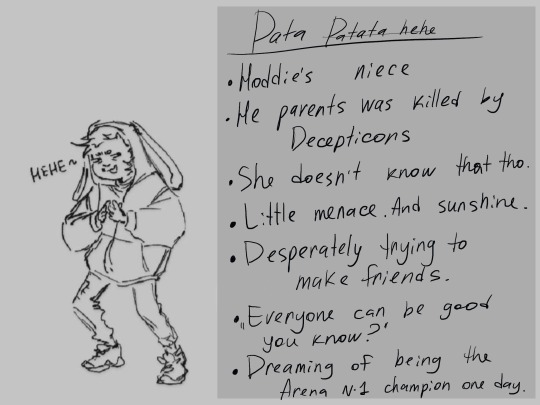 Data Patata hehe
• Hoddie's niece
• He parents was killed by
Decepticons
• She doesn't know that tho.
• Little menace. And sunshine.
• Desperately trying to
make friends.
• "Everyone can be good
you know?"
• Dreaming of being the
Arena N.1 champion one day.
HEHE~